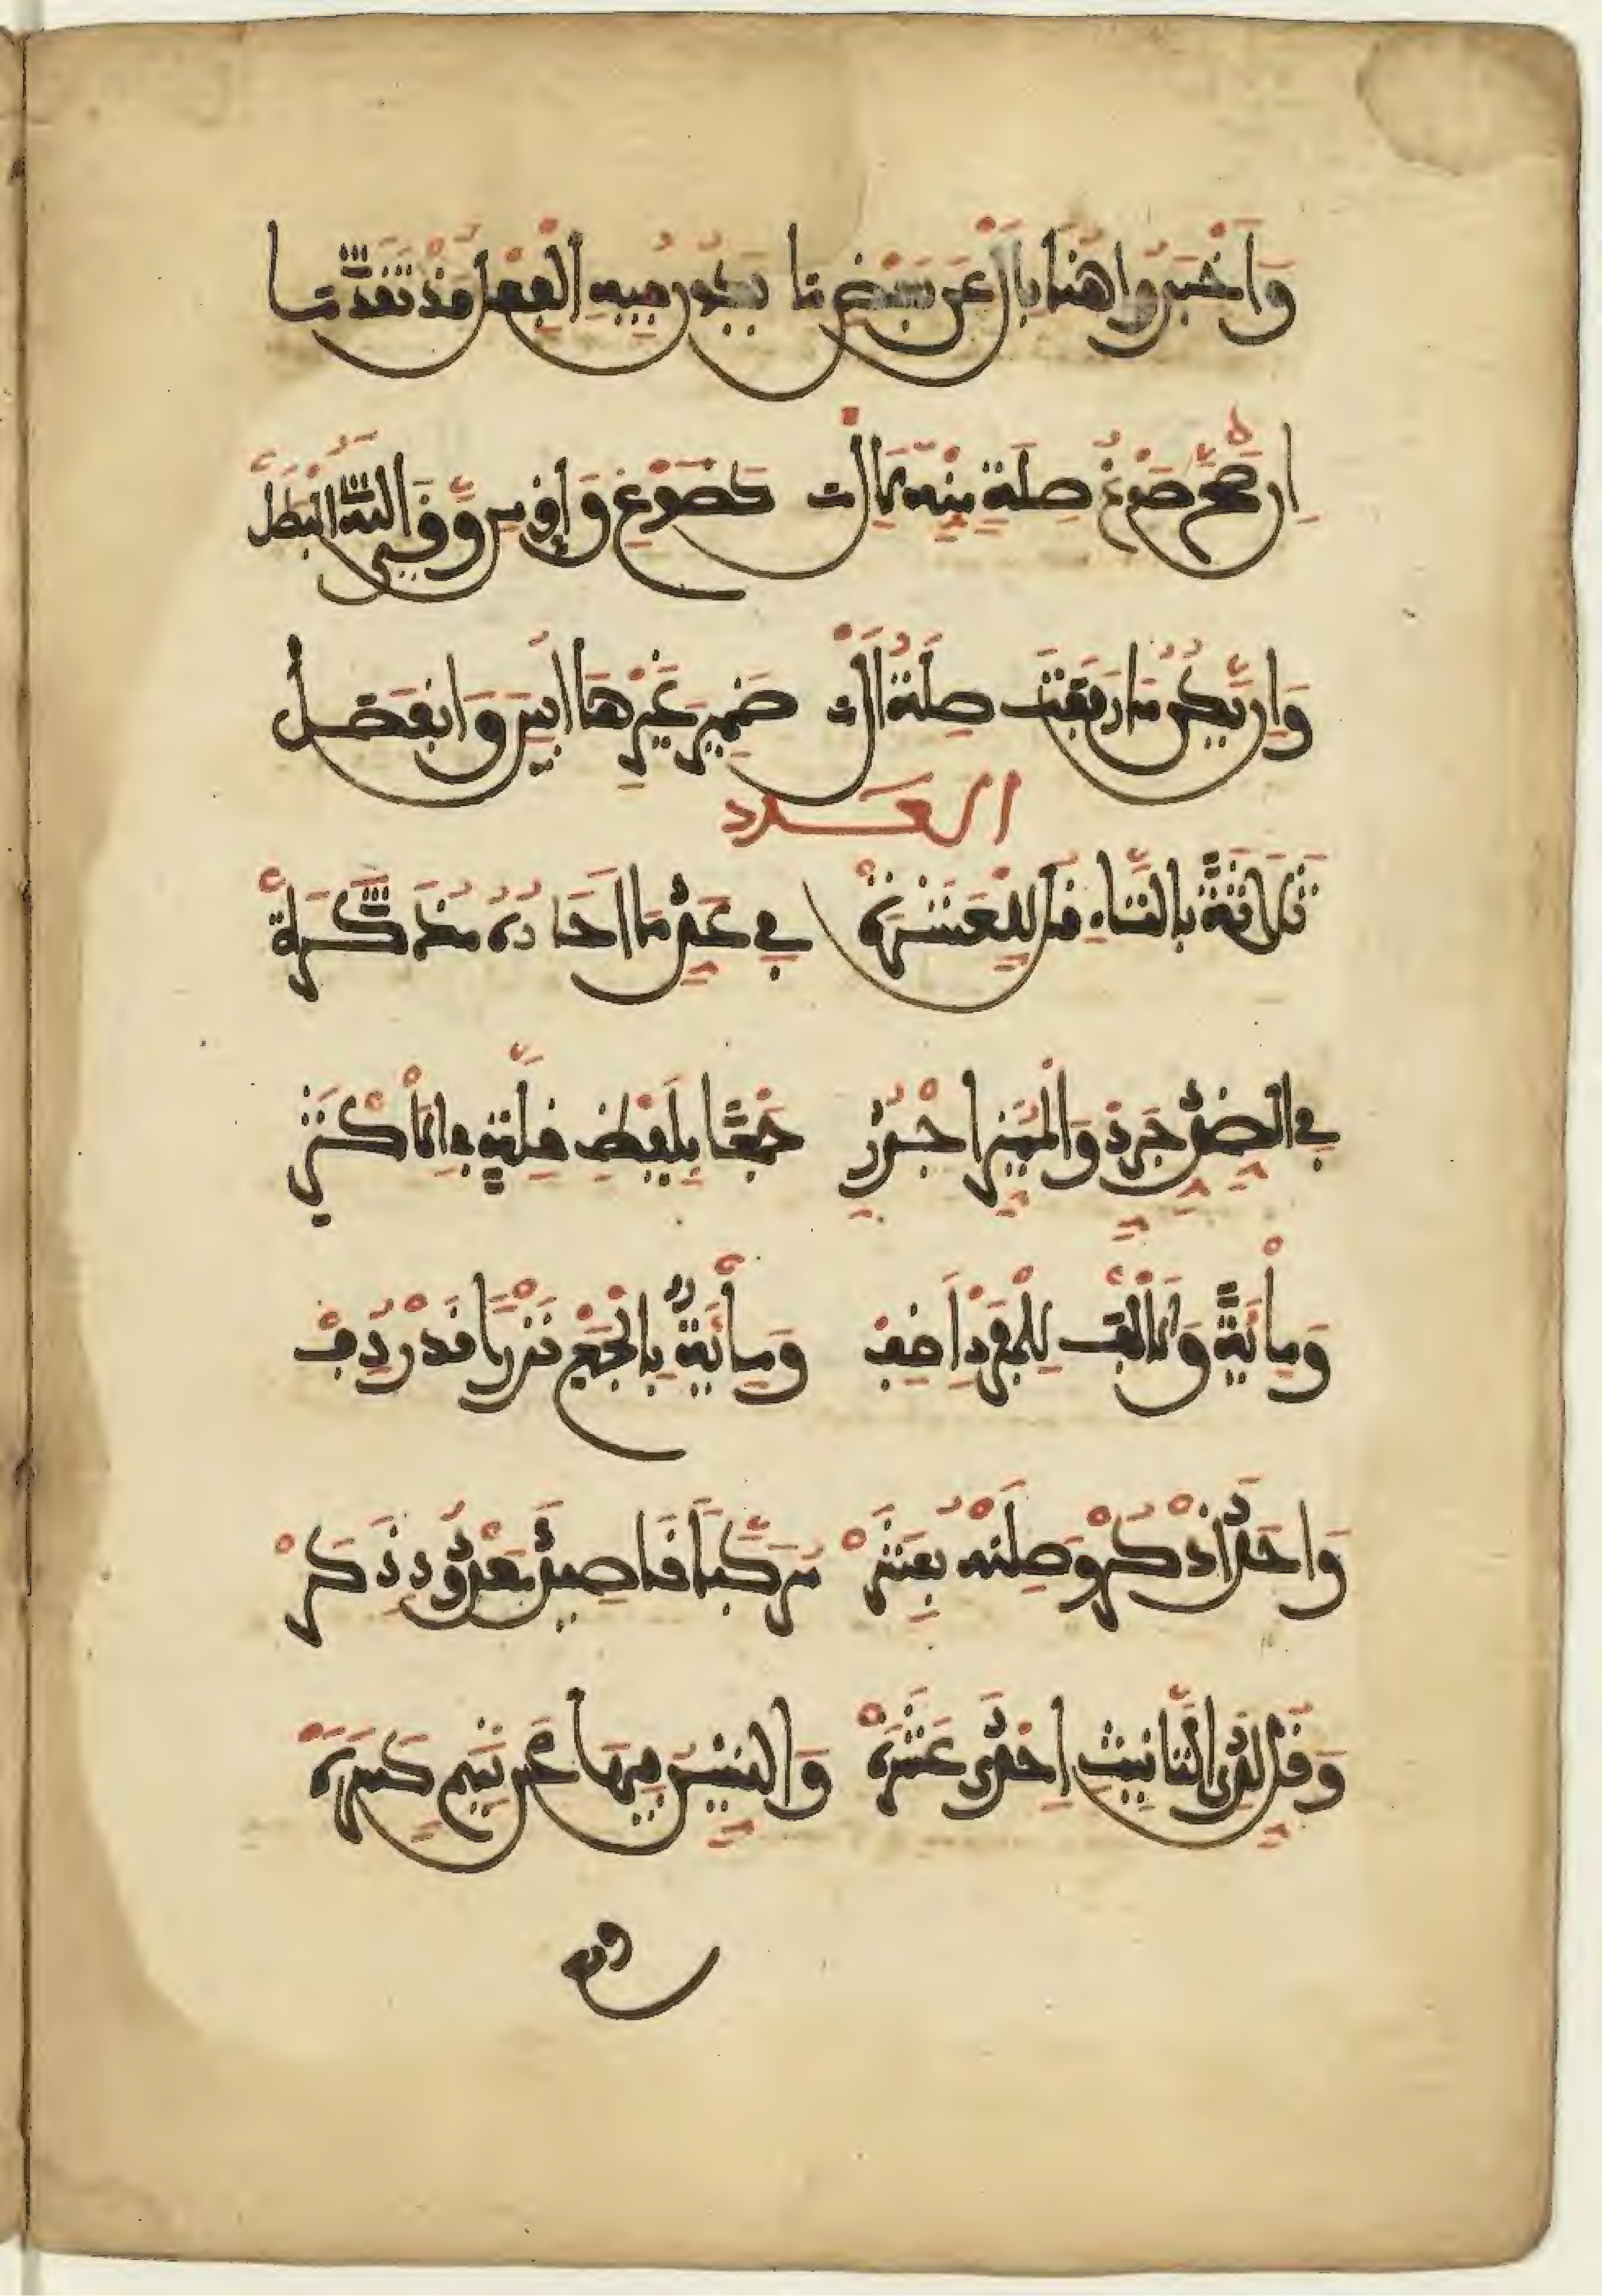 وَأَخْبَرُوا هُنَا بِأَلْ عَنْ بَعْضِ مَا يَكُونُ فِيهِ الْفِعْلُ قَدْ تَقَدَّمَا
إِنْ صَحَّ صَوْغُ صِلَةٍ مِنْهُ لِأَلْ كَصَوْغِ وَاقٍ مِنْ وَقَى اللهُ الْبَطَلْ
وَإِنْ يَكُنْ مَا رَفَعَتْ صِلَةُ أَلْ ضَمِيرَ غَيْرِهَا أُبِينَ وَانْفَصَلْ
العدد
ثَلَاثَةً بِالتَّاءِ قُلْ لِلْعَشَرَهْ فِي عَدِّ مَا آحَادُهُ مُذَكَّرَهْ
فِي الضِّدِّ جَرِّدْ وَالْمُمَيِّزَ اجْرُرِ جَمْعًا بِلَفْظِ قِلَّةٍ فِي الْأَكْثَرِ
وَمِائَةً وَالْأَلْفَ لِلْفَرْدِ أَضِفْ وَمِائَةٌ بِالْجَمْعِ نَزْرًا قَدْ رُدِفْ
وَأَحَدَ اذْكُرْ وَصِلَنْهُ بِعَشَرْ مُرَكَّبًا قَاصِدَ مَعْدُودٍ ذَكَرْ
وَقُلْ لَدَى التَّأْنِيثِ إِحْدَى عَشْرَهْ وَالشِّينُ فِيهَا عَنْ تَمِيمٍ كَسْرَهْ